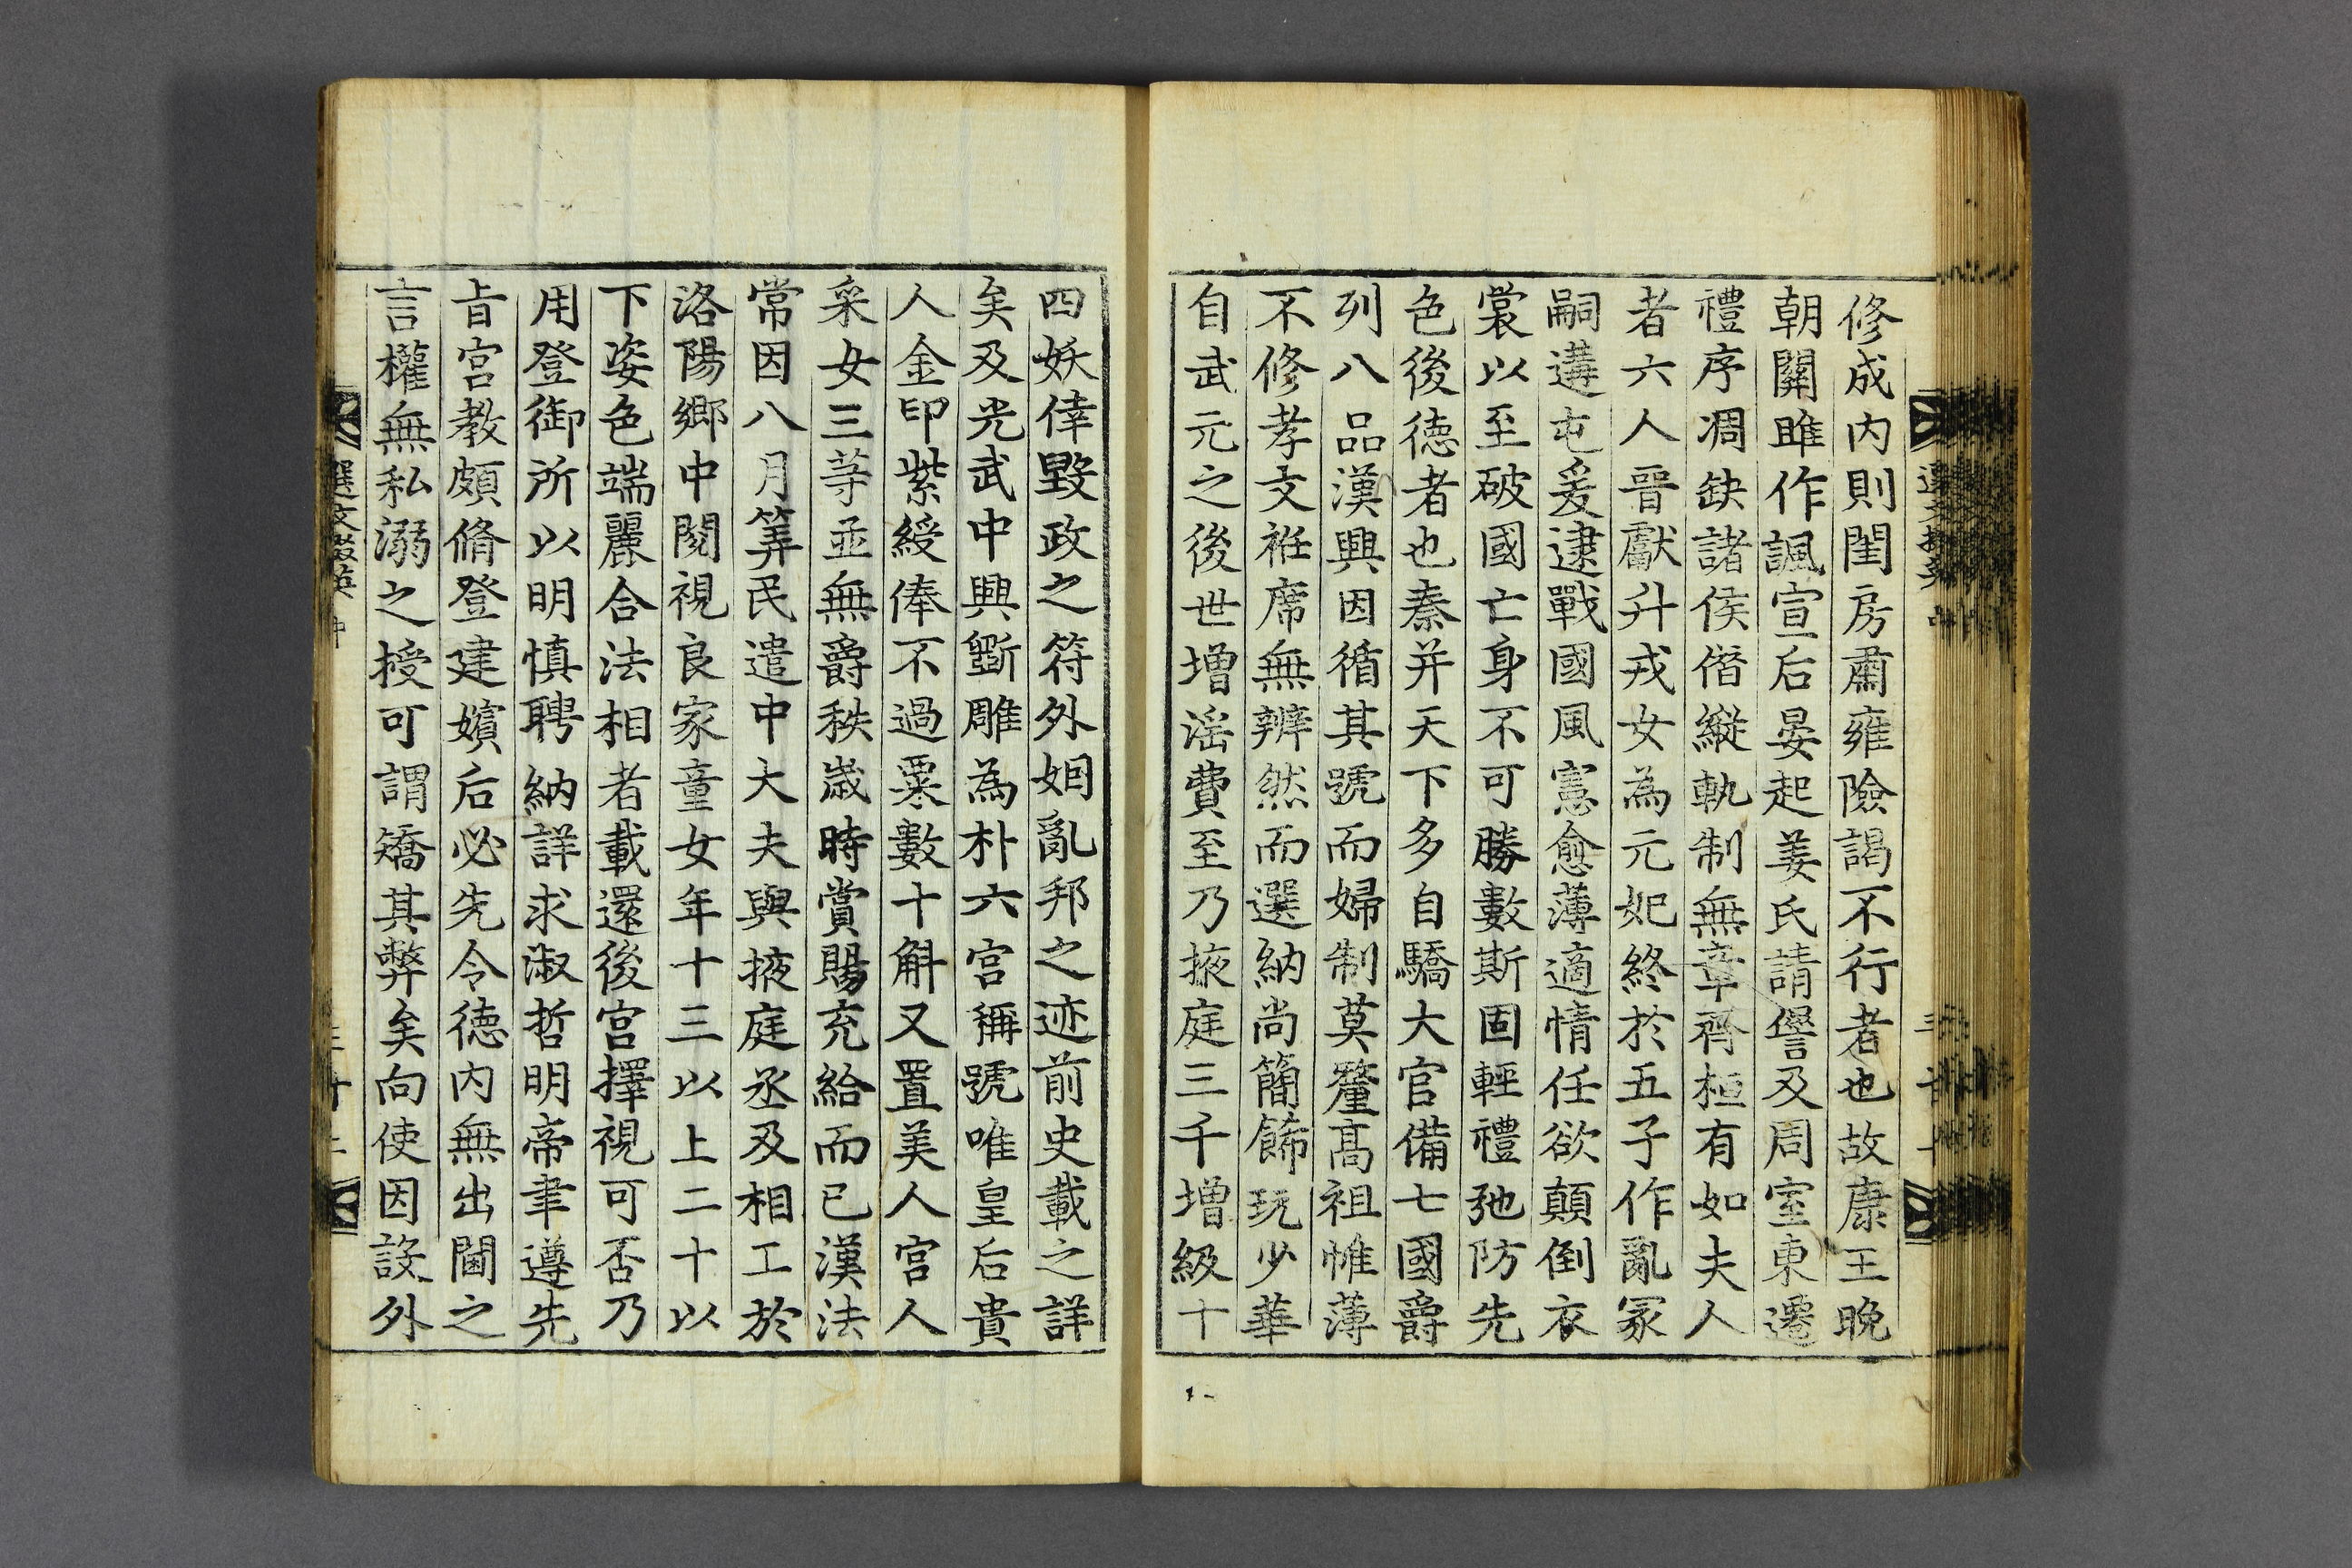 修成內則閨房肅雍險謁不行者也故康王晚
朝關雎作諷宣后晏起姜氏請愆及周室東遷
禮序凋缺諸侯僭縱軌制無章齊桓有如夫人
者六人晉獻升戎女為元妃終於五子作亂冢
嗣遘屯爰逮戰國風憲愈薄適情任欲顛倒衣
裳以至破國亡身不可勝數斯固輕禮弛防先
色後德者也秦并天下多自驕大宮備七國爵
列八品漢興因循其號而婦制莫釐高祖帷薄
不修孝文袵席無辨然而選納尚簡飾玩少華
自武元之後世增淫費至乃掖庭三千增級十
四妖倖毀政之符外姻亂邦之迹前史載之詳
矣及光武中興斲雕為朴六宮稱號唯皇后貴
人金印紫綬俸不過粟數十斛又置美人宮人
采女三等並無爵秩歲時賞賜充給而已漢法
常因八月筭民遣中大夫與掖庭丞及相工於
洛陽鄉中閱視良家童女年十三以上二十以
下姿色端麗合法相者載還後宮擇視可否乃
用登御所以明慎聘納詳求淑哲明帝聿遵先
旨宮教頗脩登建嬪后必先令德內無出閫之
言權無私溺之授可謂矯其弊矣向使因設外
選文掇英 中